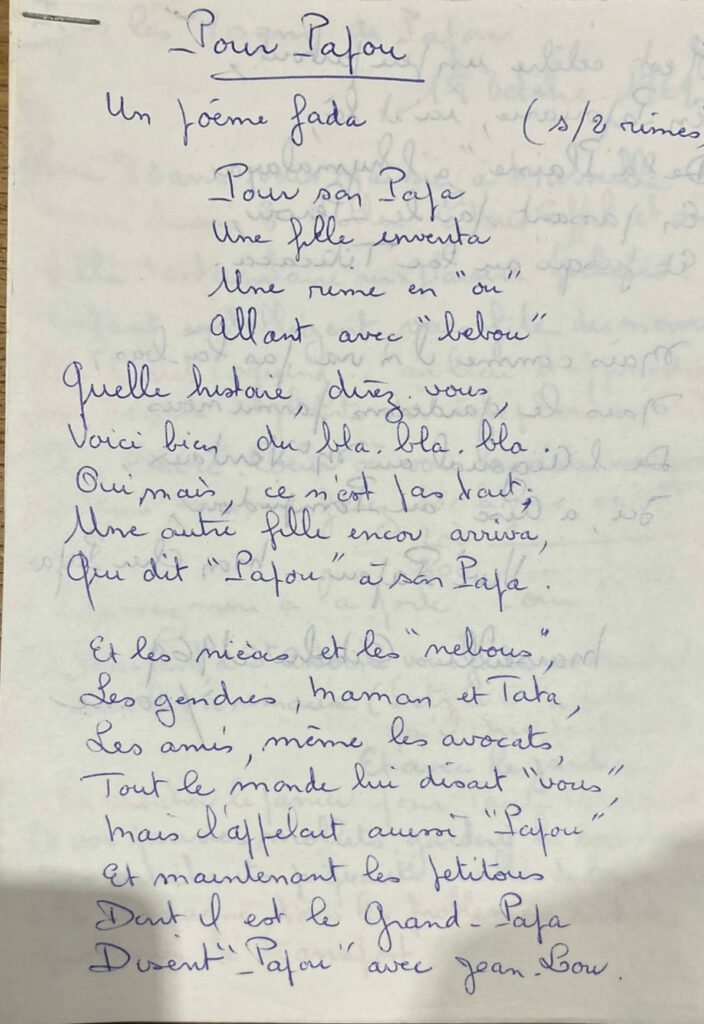 Pour Papou
Un poème fada (s/2 rimes)
Pour son Papa
Une fille inventa
Une rime en "ou"
Allant avec "bebou"
Quelle histoire, direz-vous,
Voici bien du bla-bla-bla.
Oui mais, ce n'est pas tout;
Une autre fille encor arriva,
Qui dit "Papou" à son Papa.
Et les nièces et les "nebous",
Les gendres, Maman et Tata,
Les amis, même les avocats,
Tout le monde lui disait "vous",
Mais l'appelait aussi "Papou"
Et maintenant les petitous
Dont il est le Grand-Papa
Disent "Papou" avec Jean-Lou.